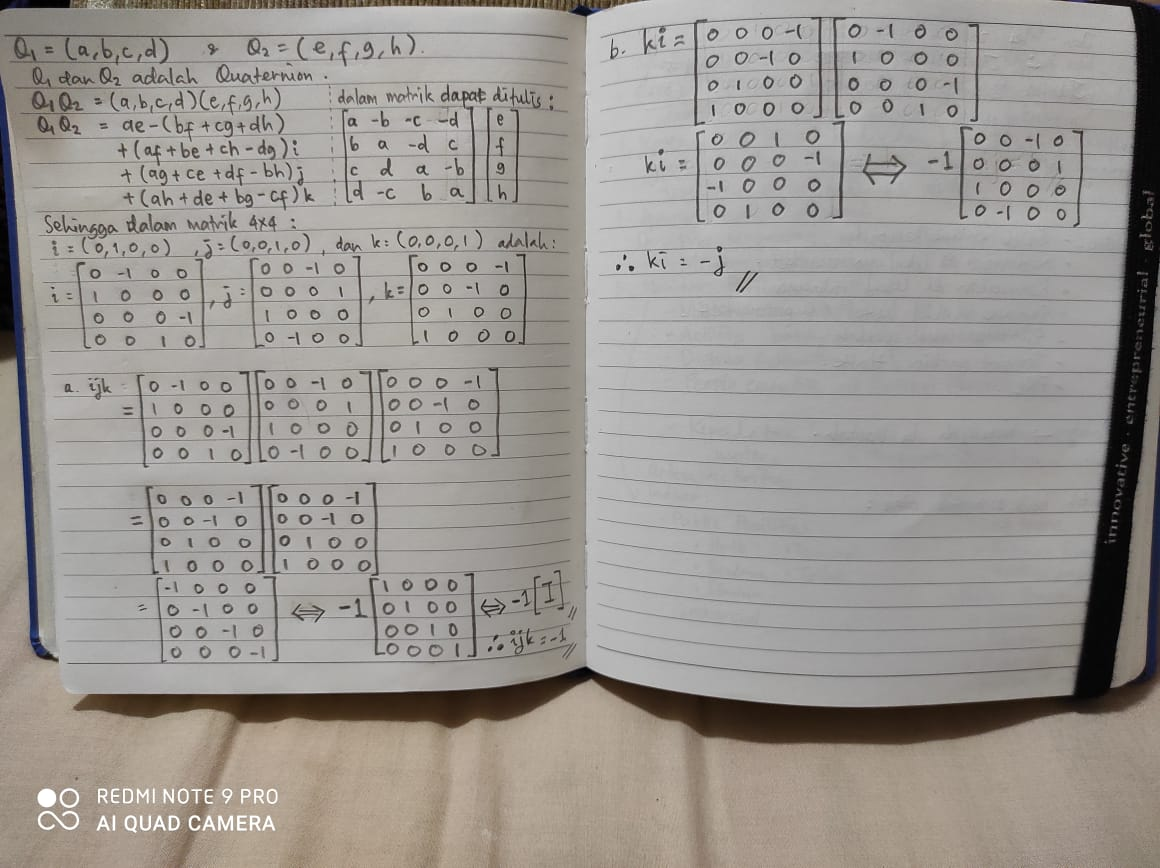 Q₁ = (a,b,c,d) & Q₂ = (e,f,g,h).
Q₁ dan Q₂ adalah Quaternion.
Q₁Q₂ = (a,b,c,d)(e,f,g,h)
Q₁Q₂ = ae-(bf+cg+dh)
+(af+be+ch-dg)i
+(ag+ce+df-bh)j
+(ah+de+bg-cf)k
dalam matrik dapat ditulis:
[a -b -c -d] [e]
[b a -d c] [f]
[c d a -b] [g]
[d -c b a] [h]
Sehingga dalam matrik 4x4:
i = (0,1,0,0), j = (0,0,1,0), dan k = (0,0,0,1) adalah:
i = [0 -1 0 0], j = [0 0 -1 0], k = [0 0 0 -1]
[1 0 0 0] [0 0 0 1] [0 0 -1 0]
[0 0 0 -1] [1 0 0 0] [0 1 0 0]
[0 0 1 0] [0 -1 0 0] [1 0 0 0]
a. ijk = [0 -1 0 0] [0 0 -1 0] [0 0 0 -1]
= [1 0 0 0] [0 0 0 1] [0 0 -1 0]
[0 0 0 -1] [1 0 0 0] [0 1 0 0]
[0 0 1 0] [0 -1 0 0] [1 0 0 0]
[0 0 0 -1] [0 0 0 -1]
= [0 0 -1 0] [0 0 -1 0]
[0 1 0 0] [0 1 0 0]
[1 0 0 0] [1 0 0 0]
[-1 0 0 0] [1 0 0 0]
= [0 -1 0 0] ⟺ -1 [0 1 0 0] ⟺ -1[I]//
[0 0 -1 0] [0 0 1 0]
[0 0 0 -1] [0 0 0 1] ∴ ijk = -1 //
b. ki = [0 0 0 -1] [0 -1 0 0]
[0 0 -1 0] [1 0 0 0]
[0 1 0 0] [0 0 0 -1]
[1 0 0 0] [0 0 1 0]
ki = [0 0 1 0] ⟺ -1 [0 0 -1 0]
[0 0 0 -1] [0 0 0 1]
[-1 0 0 0] [1 0 0 0]
[0 1 0 0] [0 -1 0 0]
∴ ki = -j //
innovative · entrepreneurial · global
REDMI NOTE 9 PRO
AI QUAD CAMERA